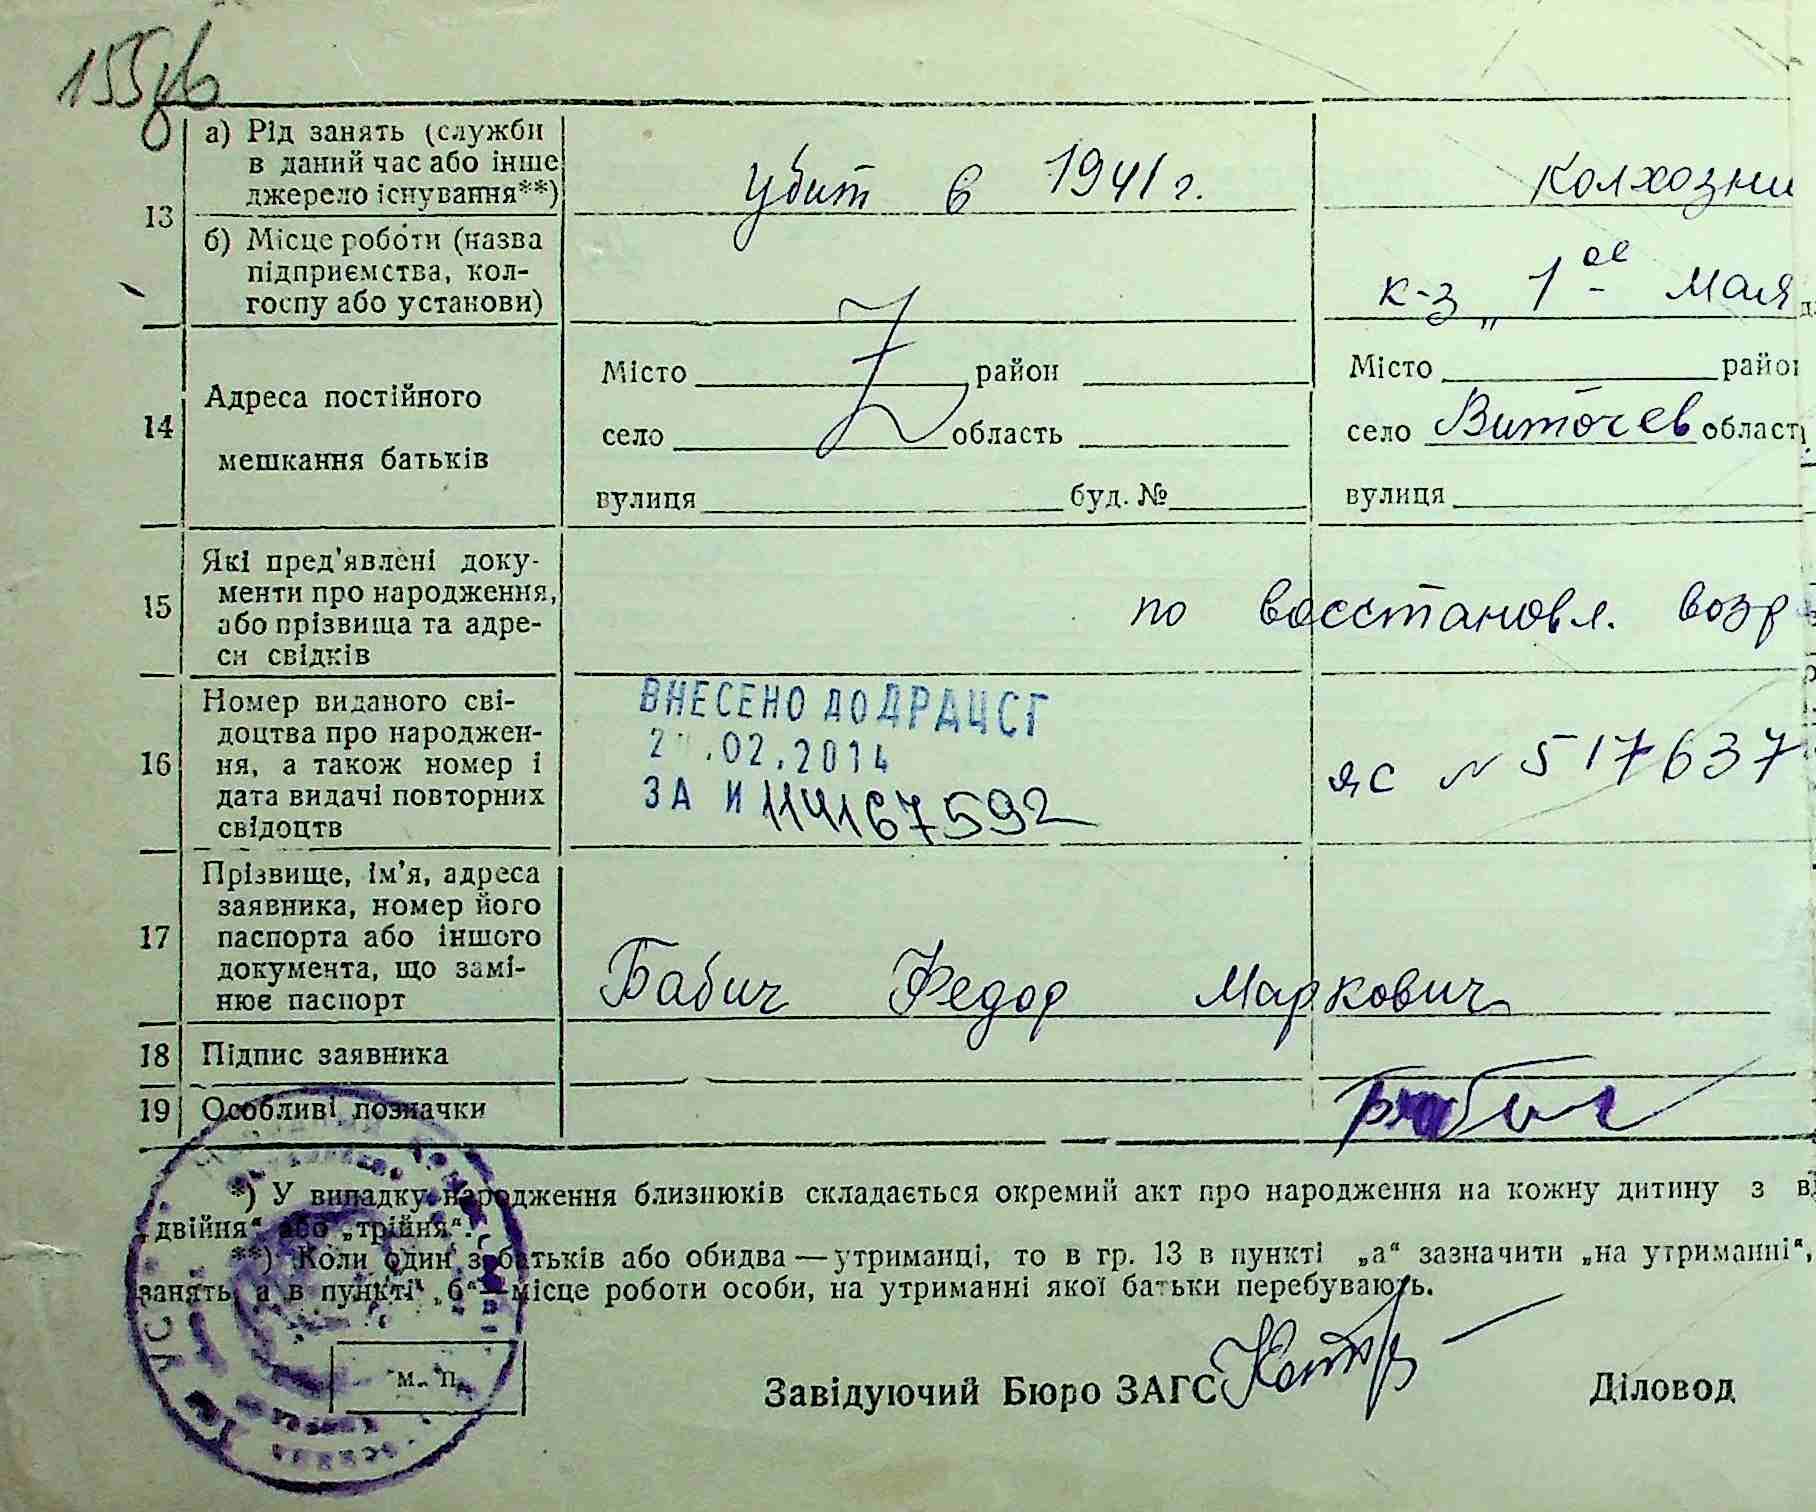 13
а) Рід занять (служби
в даний час або інше
джерело існування**)
убит в 1941 г.
колхозни
б) Місце роботи (назва
підприємства, кол-
госпу або установи)
к-з „ 1ое Мая
14
Адреса постійного
мешкання батьків
Місто район
село область
вулиця буд. №
Місто райо
село Виточев област
вулиця
15
Які пред'явлені доку-
менти про народження,
або прізвища та адре-
си свідків
по восстановл. возр
16
Номер виданого сві-
доцтва про народжен-
ня, а також номер і
дата видачі повторних
свідоцтв
ВНЕСЕНО ДО ДРАЦСГ
.02.2014
ЗА №
яс № 517637
17
Прізвище, ім'я, адреса
заявника, номер його
паспорта або іншого
документа, що замі-
нює паспорт
Бабич Федор Маркович
18
Підпис заявника
19
Особливі позначки
Бабич
*) У випадку народження близнюків складається окремий акт про народження на кожну дитину з
„двійня“ або „трійня“.
**) Коли один з батьків або обидва — утриманці, то в гр. 13 в пункті „а“ зазначити „на утриманні“,
занять, а в пункті „б“ — місце роботи особи, на утриманні якої батьки перебувають.
м. п.
Завідуючий Бюро ЗАГС
Діловод